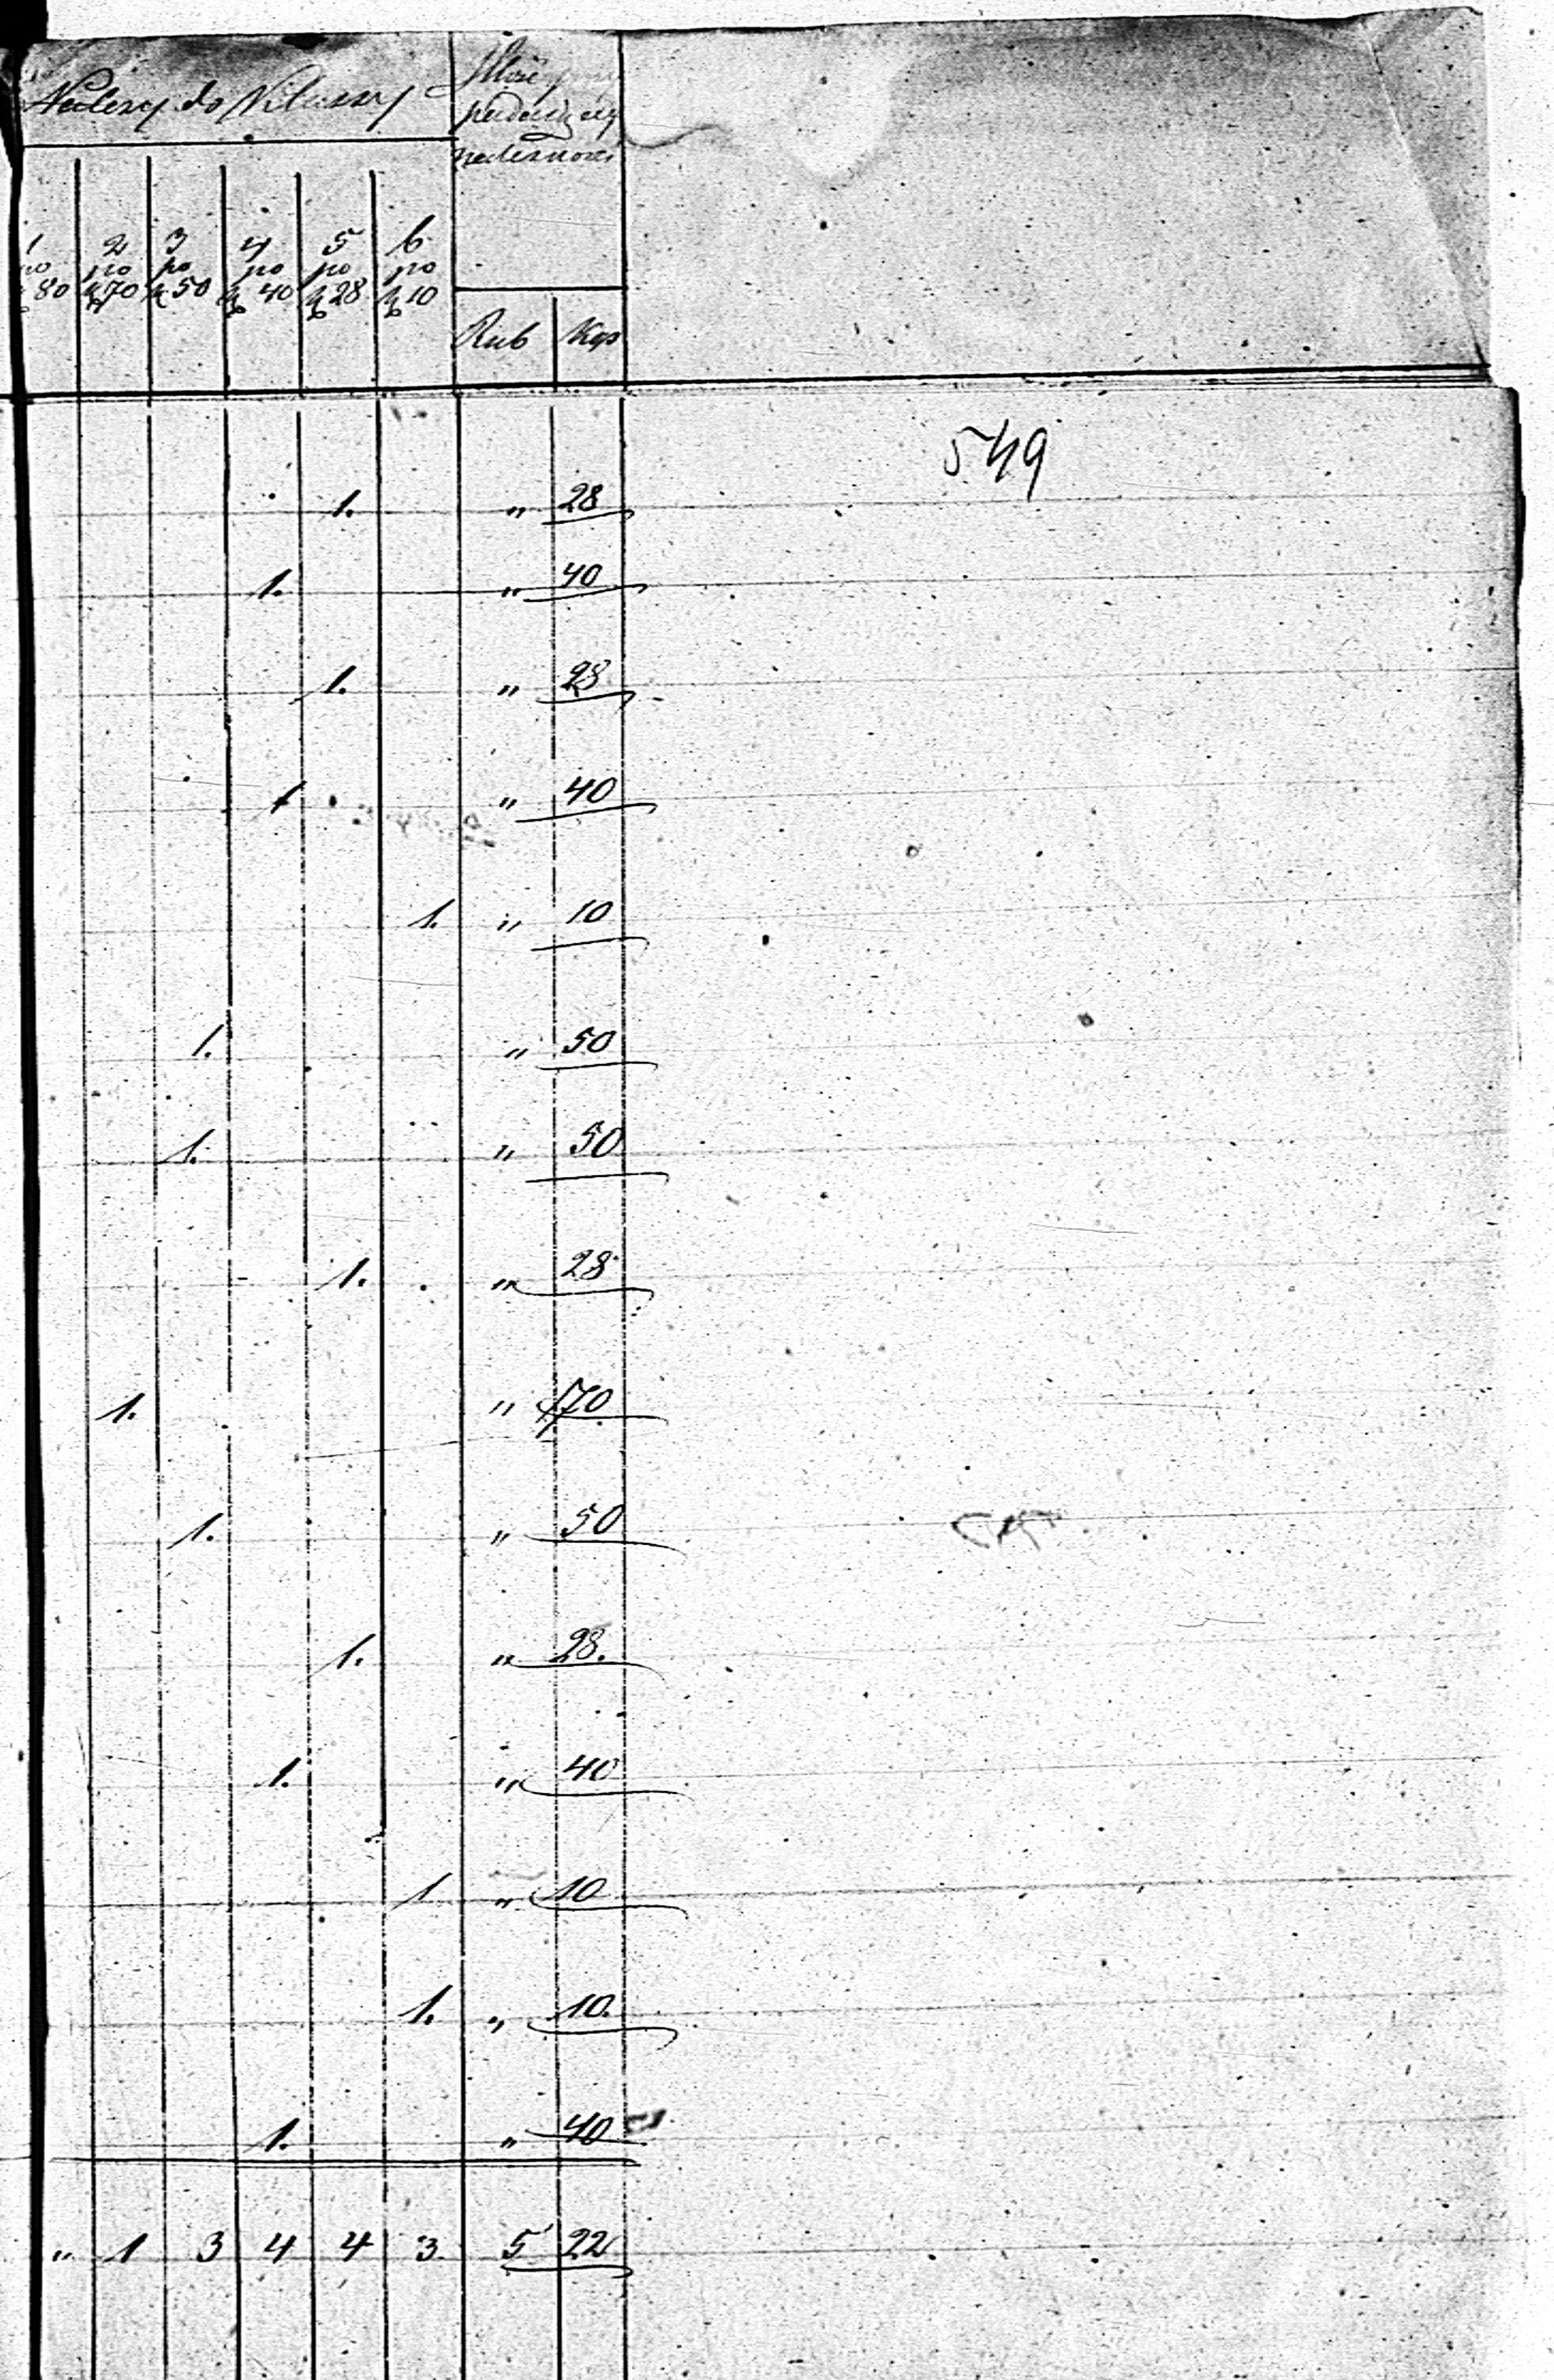 Należy do Klassy
1 2 3 4 5 6
po po po po po po
80 70 50 40 28 10
Rub Kop
549
1. " 28
1. " 40
1. " 28
1 " 40
1. " 10
1. " 50
1. " 50
1. " 28
1. " 70
1. " 50
1. " 28.
1. " 40
1 " 10
1. " 10.
1. " 40
" 1 3 4 4 3 5 22